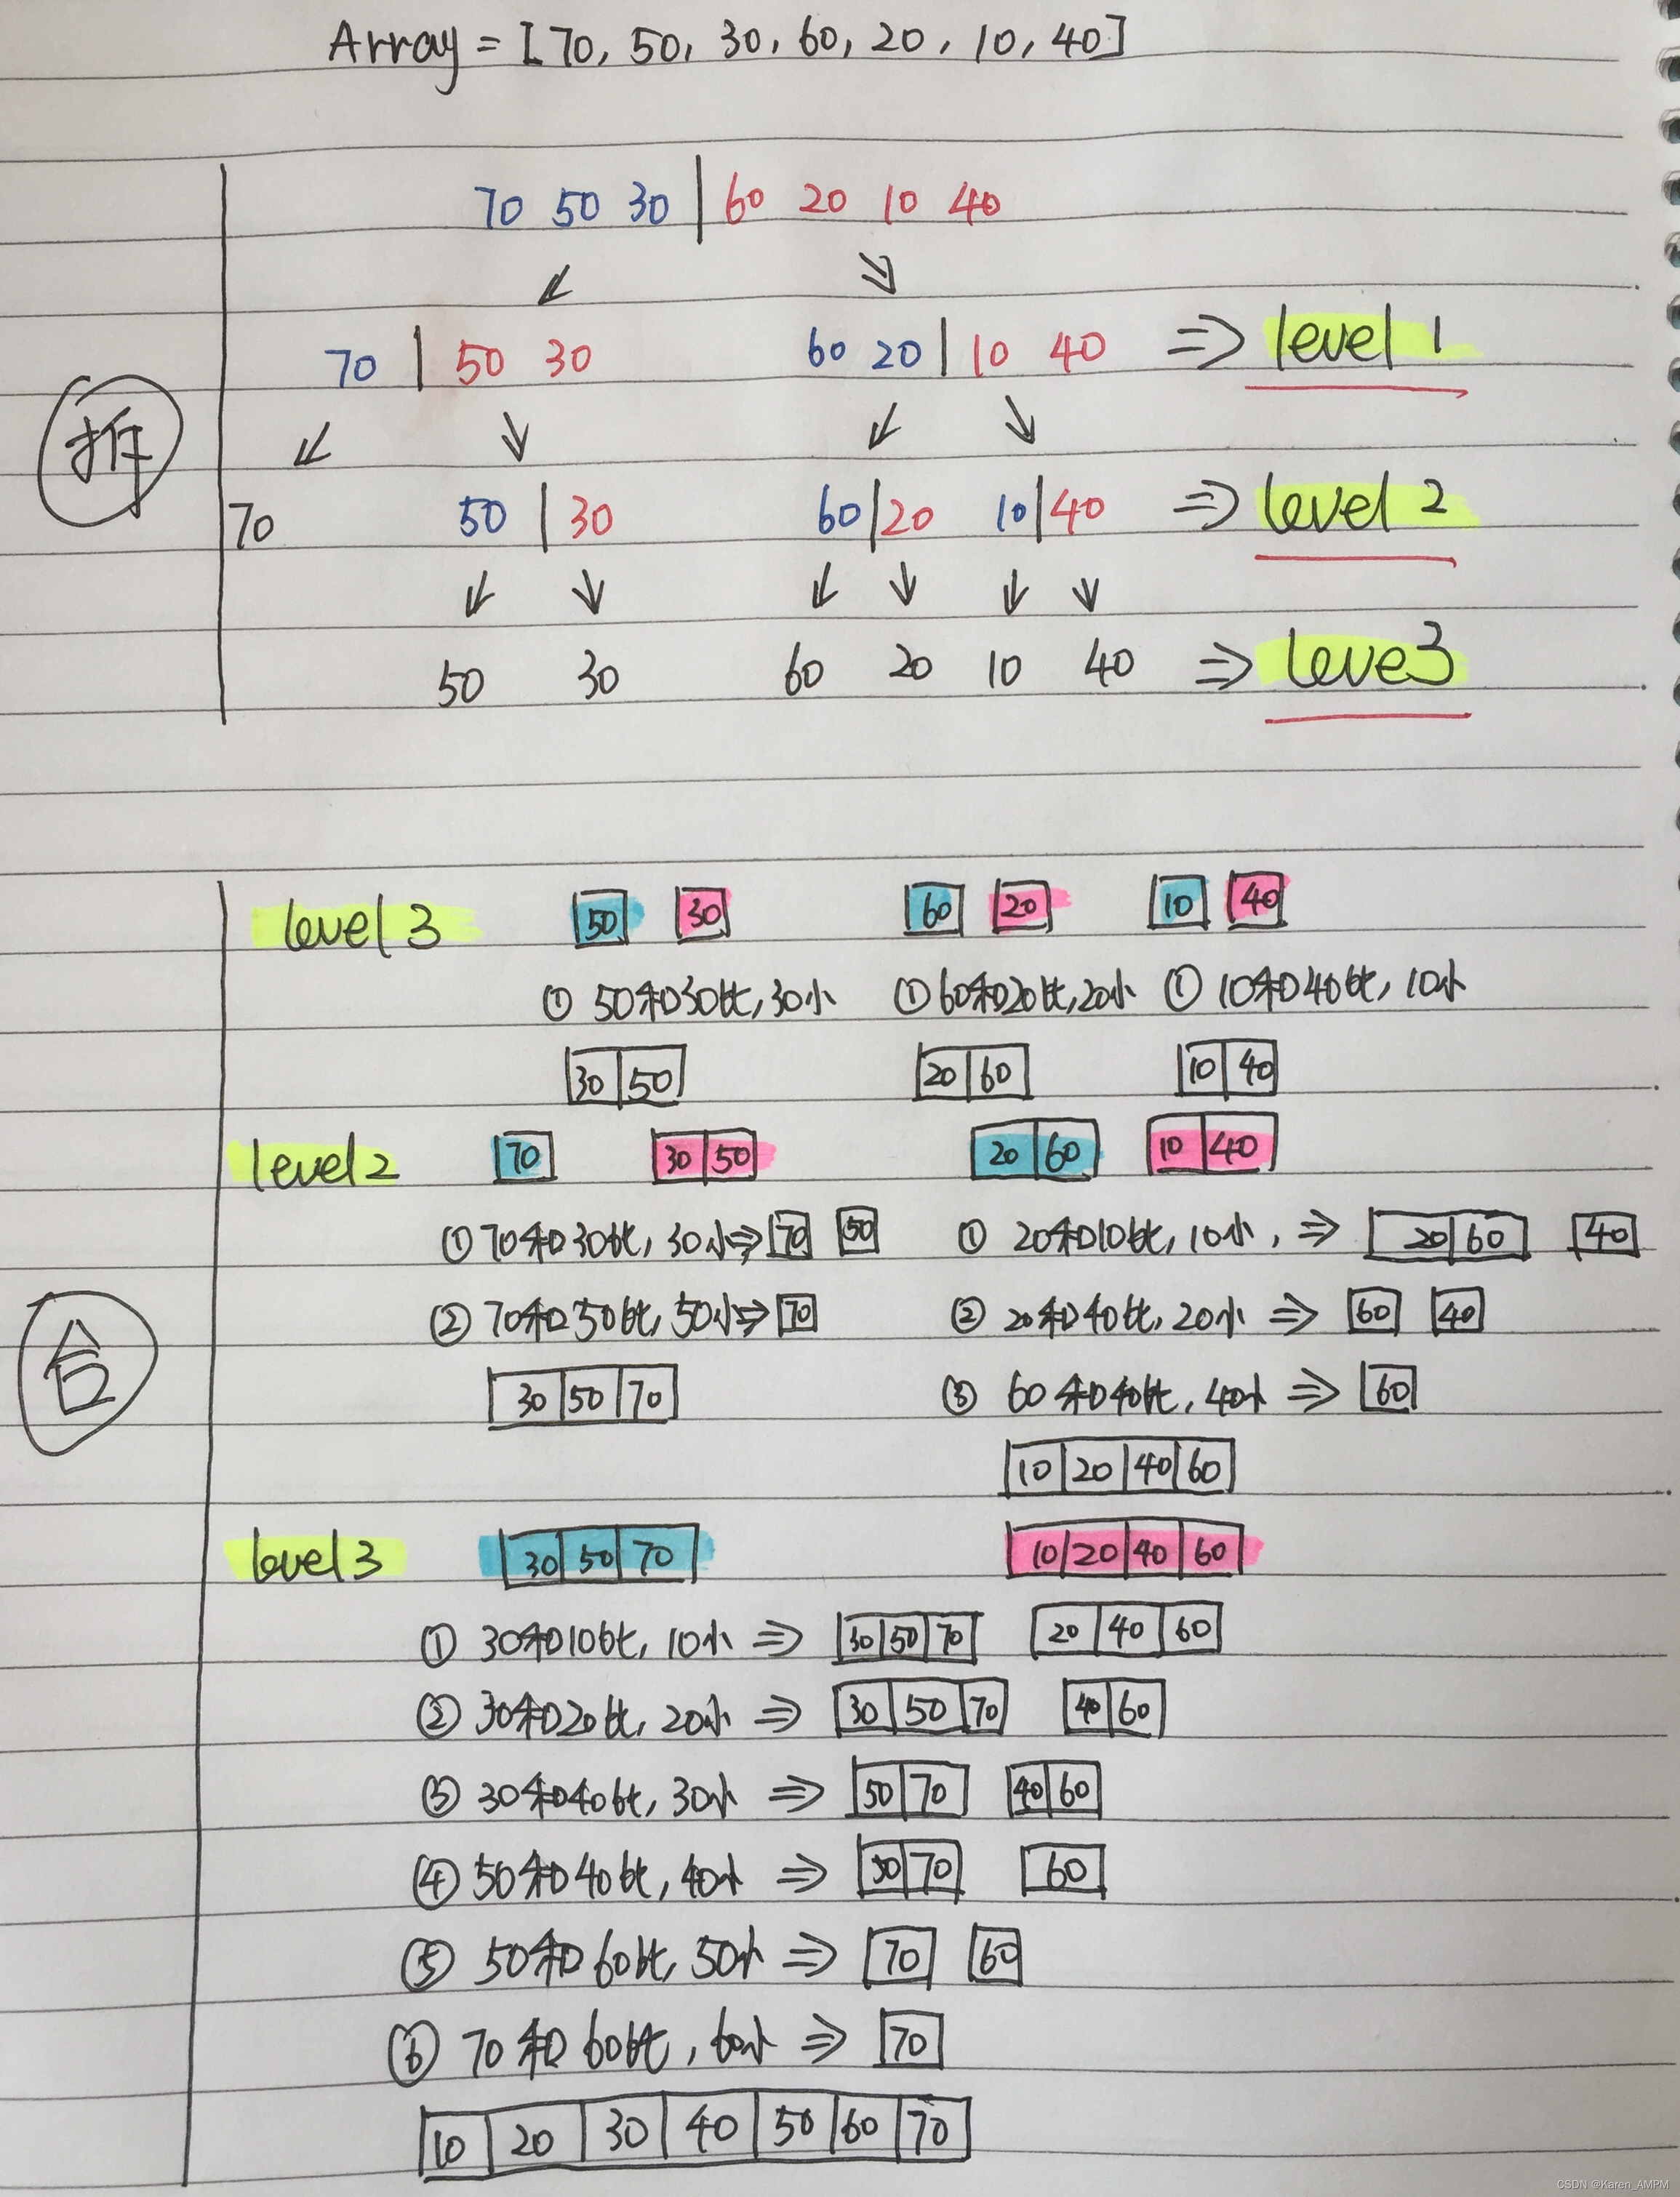 Array = [70, 50, 30, 60, 20, 10, 40]
70 50 30 | 60 20 10 40
70 | 50 30 60 20 | 10 40 ⇒ level 1
拆
70 50 | 30 60 | 20 10 | 40 ⇒ level 2
50 30 60 20 10 40 ⇒ leve3
level 3 50 30 60 20 10 40
① 50和30比, 30小 ① 60和20比, 20小 ① 10和40比, 10小
30 50 20 60 10 40
level 2 70 30 50 20 60 10 40
① 70和30比, 30小 ⇒ 70 50 ① 20和10比, 10小, ⇒ 20 60 40
② 70和50比, 50小 ⇒ 70 ② 20和40比, 20小 ⇒ 60 40
合
30 50 70 ③ 60和40比, 40小 ⇒ 60
10 20 40 60
level 3 30 50 70 10 20 40 60
① 30和10比, 10小 ⇒ 30 50 70 20 40 60
② 30和20比, 20小 ⇒ 30 50 70 40 60
③ 30和40比, 30小 ⇒ 50 70 40 60
④ 50和40比, 40小 ⇒ 50 70 60
⑤ 50和60比, 50小 ⇒ 70 60
⑥ 70和60比, 60小 ⇒ 70
10 20 30 40 50 60 70
CSDN @Karen_AMPM